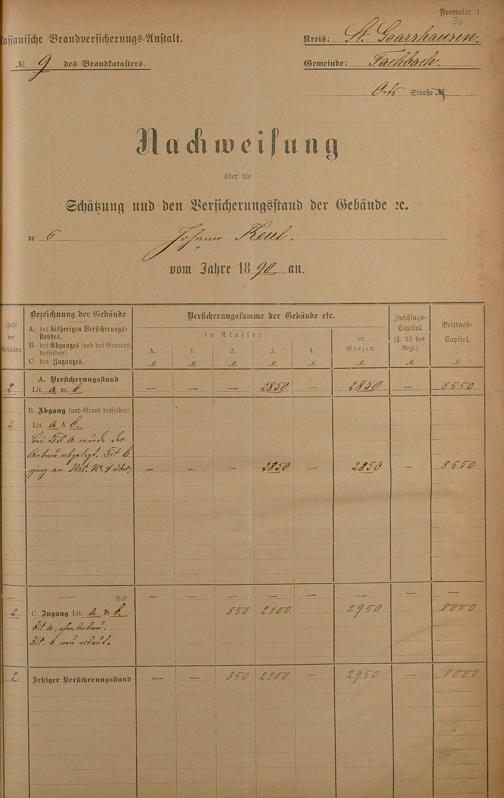 Formular 1.
39
Nassauische Brandversicherungs-Anstalt.
Kreis: St. Goarshausen.
№ 9 des Brandkatasters.
Gemeinde: Fachbach.
Orts Straße №
Nachweisung
über die
Schätzung und den Versicherungsstand der Gebäude ꝛc.
de s Johann Keul.
vom Jahre 1890 an.
Zahl der Gebäude.
Bezeichnung der Gebäude
A. des bisherigen Versicherungsstandes,
B. des Abganges (und des Grundes desselben),
C. des Zuganges.
Versicherungssumme der Gebäude etc.
in Klasse:
A. 1. 2. 3. 4. im Ganzen.
M. M. M. M. M. M.
Zuschlags-Capital (§. 35 des Regl.) M.
Beitrags-Capital. M.
A. Versicherungsstand
2 Lit. a & b — — — 2850 — 2850 — 8550
B. Abgang (und Grund desselben)
2 Lit. a & b.
Bei Lit a wurde der
Anbau abgelegt. Lit b
ging an Kat. № 4 über. — — — 2850 — 2850 — 8550
— Rest — — — — — — — —
2 C. Zugang Lit. a & b 850 2100 2950 8000
Lit a, ohne Anbau.
Lit. b neu erbaut.
2 Jetziger Versicherungsstand — — 850 2100 — 2950 — 8000